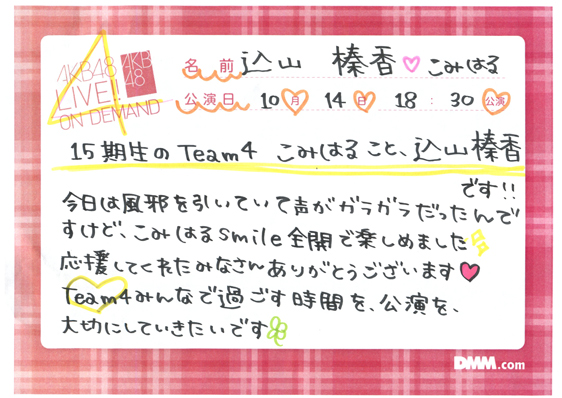 AKB48
LIVE!!
ON DEMAND
AKB
48
名 前 込山 榛香♡ こみはる
公演日 10月 14日 18:30公演
15期生のTeam4 こみはること、込山榛香
です!!
今日は風邪を引いていて声がガラガラだったんで
すけど、こみはるsmile全開で楽しめました
応援してくれたみなさんありがとうございます♥
Team4みんなで過ごす時間を、公演を、
大切にしていきたいです
DMM.com